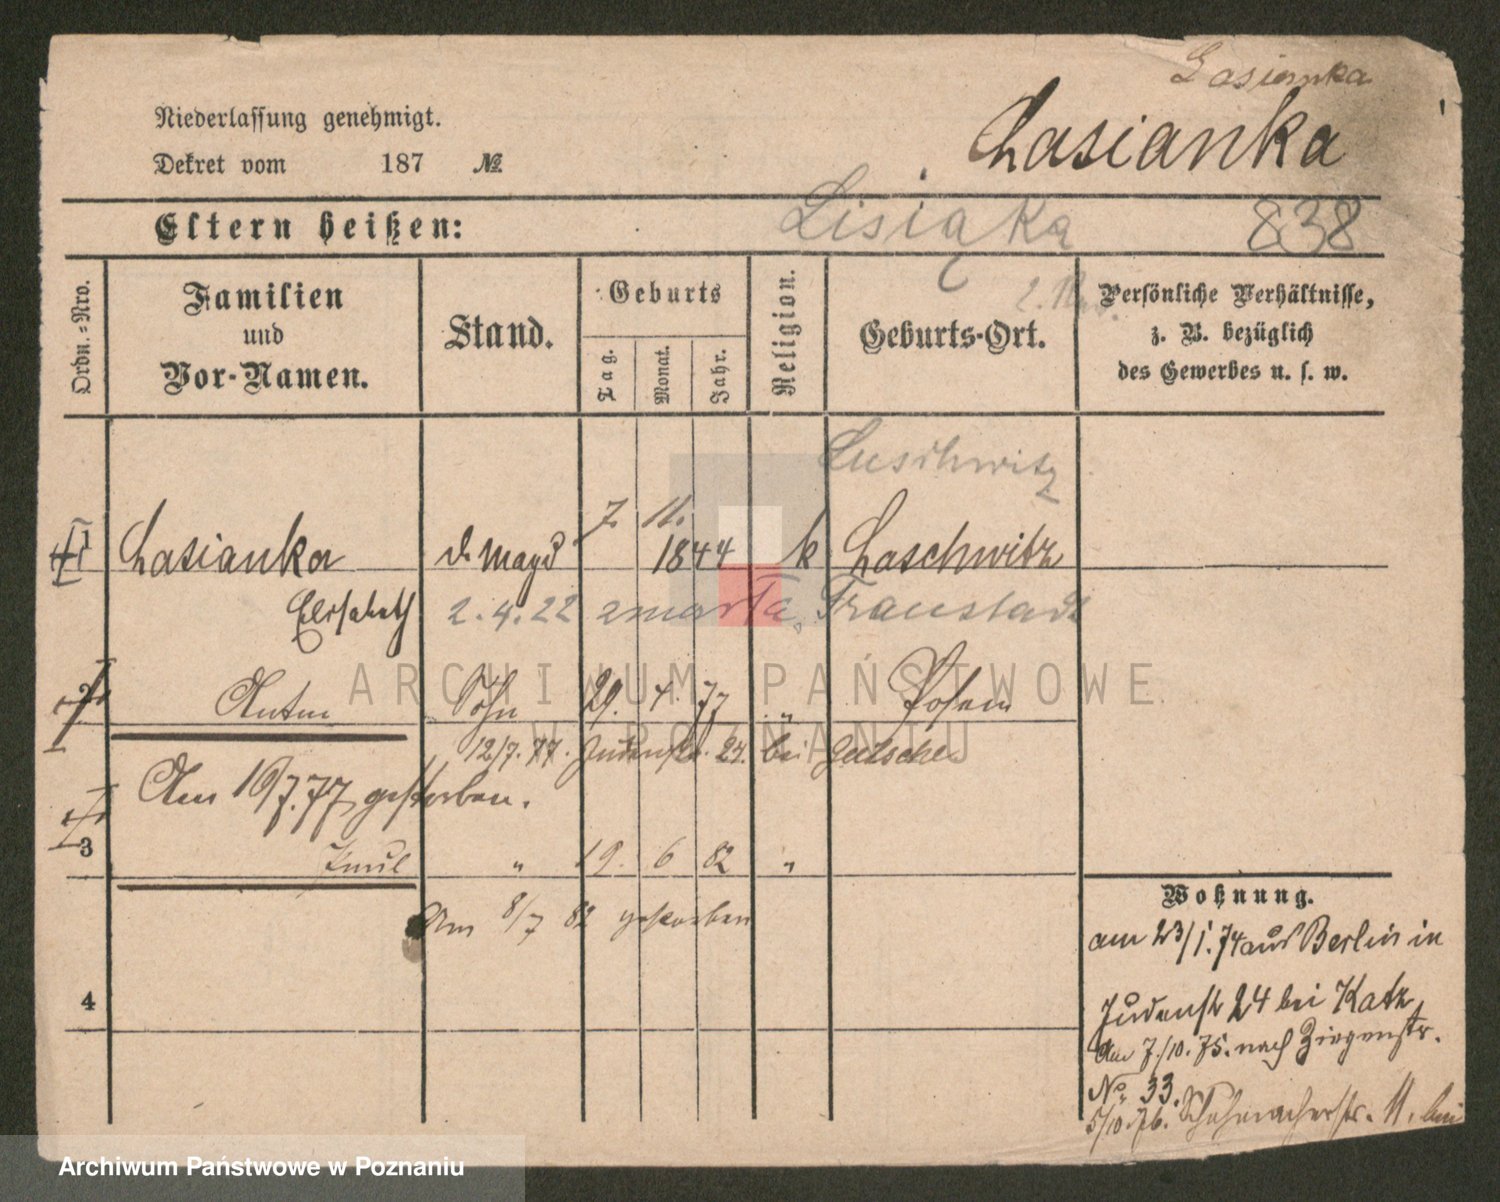 Lasianka
Niederlassung genehmigt.
Lasianka
Dekret vom 187 №
Eltern heißen:
Lisiąka 838
Ordn.-Nro.
Familien und Vor-Namen.
Stand.
Geburts
Tag. Monat. Jahr.
Religion.
Geburts-Ort.
Persönliche Verhältnisse,
z. B. bezüglich
des Gewerbes u. s. w.
Luschwitz
7. 11.
1 Lasianka d. Magd 1844 k Laschwitz
Elisabeth 2.4.22 zmarła Fraustadt
ARCHIWUM PAŃSTWOWE
W POZNANIU
2 Anton Sohn 29. 4. 77 " Posen
12/7. 77. Judenstr. 24. bei
Am 19/7. 77 gestorben.
3 " 19. 6 82 "
Am 8/7 82 gestorben
4
Wohnung.
am 23/1. 74 aus Berlin in
Judenstr 24 bei Katz
Am 7./10. 75. nach Ziegenstr.
No. 33.
5/10. 76. Schuhmacherstr. 11. bei
Archiwum Państwowe w Poznaniu